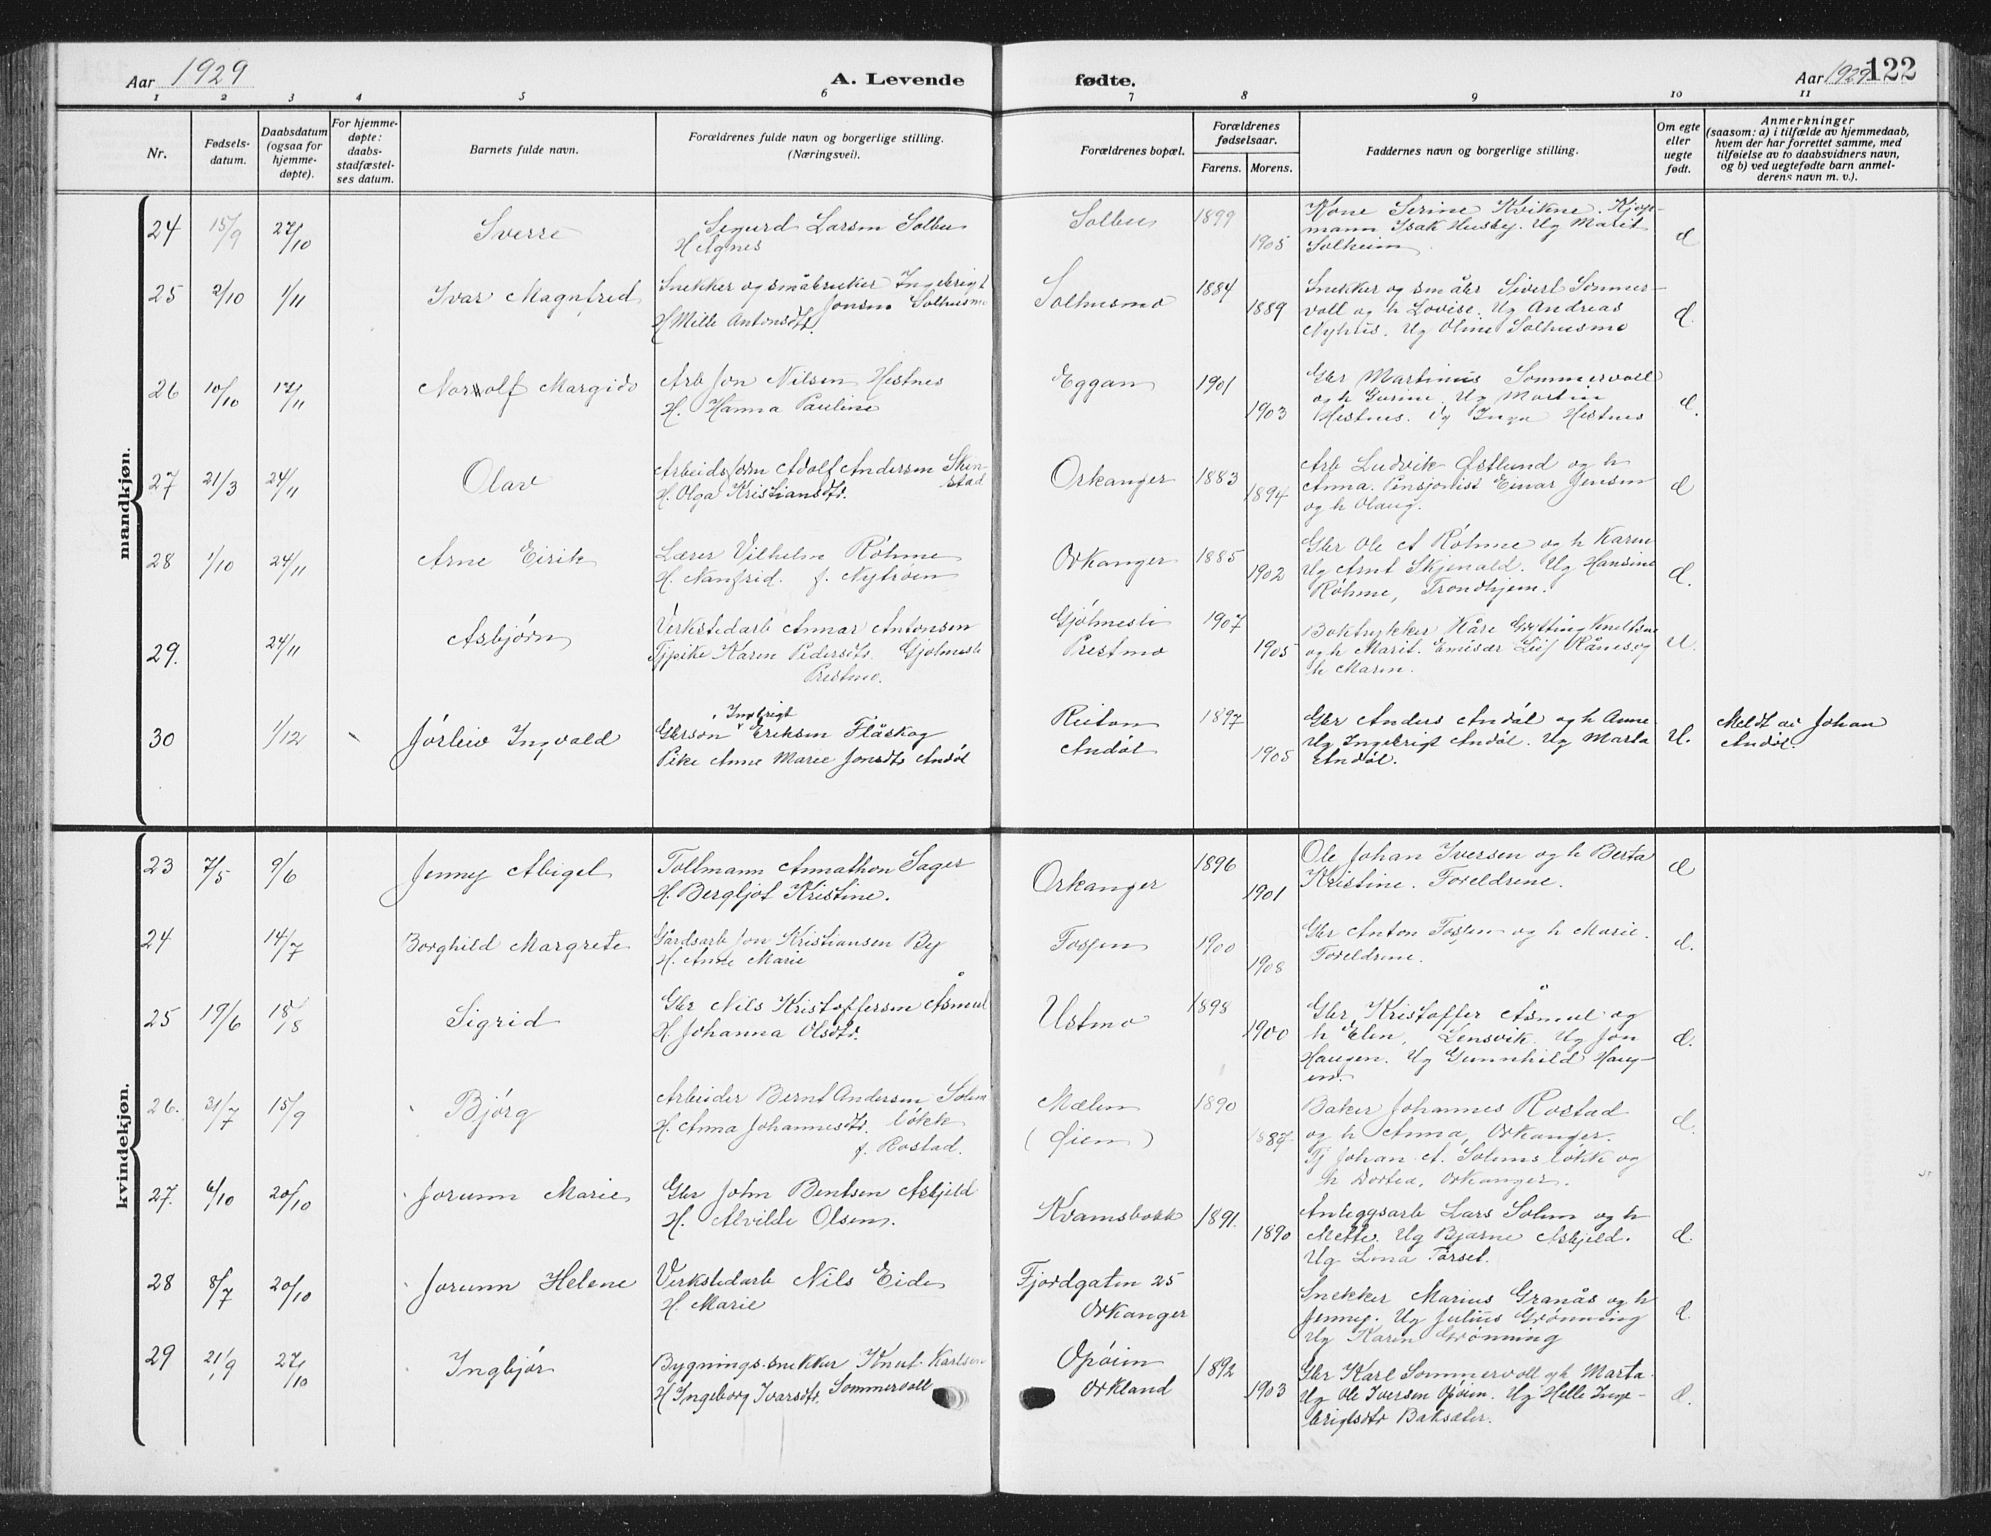 Aar 1929
A. Levende fødte.
Aar 1929
122
1 2 3 4 5 6 7 8 9 10 11
Nr.
Fødsels-
datum.
Daabsdatum
(ogsaa for
hjemme-
døpte).
For hjemme-
døpte:
daabs-
stadfæstel-
ses datum.
Barnets fulde navn.
Forældrenes fulde navn og borgerlige stilling.
(Næringsvei).
Forældrenes bopæl.
Forældrenes
fødselsaar.
Farens. Morens.
Faddernes navn og borgerlige stilling.
Om egte
eller
uegte
født.
Anmerkninger
(saasom: a) i tilfælde av hjemmedaab,
hvem der har forrettet samme, med
tilføielse av to daabsvidners navn,
og b) ved uegtefødte barn anmel-
derens navn m. v.).
mandkjøn.
24 15/9 27/10 Sverre
Sigurd Larsen Solbu
H Agnes
Solbu 1899 1905
Kone Serine Kvikne. Kjøp-
mann Isak Husby. Ug Marit
Solheim
d
25 2/10 1/11 Ivar Magnfred
Snekker og småbruker Ingebrigt
Jonsen Solhusmo
H Mille Antonsdtr.
Solhusmo 1884 1889
Snekker og småbr Sivert Sommer-
voll og h Lovise. Ug Andreas
Nyhus. Ug Oline Solhusmo
d.
26 10/10 17/11 Norolf Margido
Arb Jon Nilsen Hestnes
H. Hanna Pauline
Eggan 1901 1903
Gbr Martinus Sommervoll
og h Gurine. Ug Martin
Hestnes. Ug Inga Hestnes
d.
27 21/3 24/11 Olav
Arbeidsform Adolf Andersen Skin-
stad
H. Olga Kristiansdtr.
Orkanger 1883 1894
Arb Ludvik Østlund og h
Anna. Pensjonist Einar Jensen
og h Olaug.
d
28 1/10 24/11 Arne Eirik
Lærer Vilhelm Røhme
H. Nanfrid. f. Nytrøen
Orkanger 1885 1902
Gbr Ole A Røhme og h Karen
Ug Arnt Skjenald. Ug Hansine
Røhme, Trondhjem.
d.
29. 24/11 Asbjørn
Verkstedarb Annar Antonsen
Tjpike Karen Pedersdtr. Gjølmesli
Prestmo.
Gjølmesli
Prestmo
1907 1905
Boktrykker Kåre Grøtting
og h Marit. Emisær Leif Rånes og
h Maren.
u.
30 1/12 Jørleiv Ingvald
Ingebrigt
Gbrsøn Eriksen Flåskog
Pike Anne Marie Jonsdtr Andøl
Reiton
Andøl
1897 1905
Gbr Anders Andøl og h Anne
Ug Ingebrigt Andøl. Ug Marta
Andøl.
U.
Meldt av Johan
Andøl.
kvindekjøn.
23 7/5 9/6 Jenny Abigel
Tollmann Annathon Sager
H. Bergljot Kristine.
Orkanger 1896 1901
Ole Johan Iversen og h Berta
Kristine. Foreldrene.
d
24 14/7 Borghild Margrete
Gårdsarb Jon Kristiansen By
H. Anne Marie
Fossen 1900 1908
Gbr Anton Fossen og h Marie.
Foreldrene.
d.
25 19/6 18/8 Sigrid
Gbr Nils Kristoffersen Åsmul
H Johanna Olsdtr.
Ustmo 1898 1900
Gbr Kristoffer Åsmul og
h Elen, Lensvik. Ug Jon
Haugen. Ug Gunnhild Haug-
en.
d.
26. 31/7 15/9 Bjørg
Arbeider Bernt Andersen Solem
H. Anna Johannesdtr. løkk
f. Rostad.
Mælen
(Øien)
1890 1887
Baker Johannes Rostad
og h Anna, Orkanger.
Tj Johan A. Solemsløkk og
h Dortea, Orkanger.
d.
27. 6/10 20/10 Jorunn Marie
Gbr John Bentsen Asbjeld
H. Alvilde Olsen.
Kvamsbakk 1891. 1890
Anleggsarb Lars Solem og h
Mette. Ug Bjarne Asbjeld.
Ug Lina Tørset.
d.
28 8/7 20/10 Jorunn Helene
Verkstedarb Nils Eide
H. Marie
Fjordgaten 25
Orkanger
Snekker Marius Granås og h
Jenny. Ug Julius Grønning
Ug Karen Grønning
d.
29 21/9 27/10 Ingbjør
Bygnings-snekker Knut Karlsen
Sommervoll
H Ingeborg Ivarsdtr.
Opøien
Orkland
1892 1903
Gbr Karl Sommervoll og h Marta.
Ug Ole Iversen Opøien. Ug Helle Inge-
brigtsdtr Baksæter.
d.